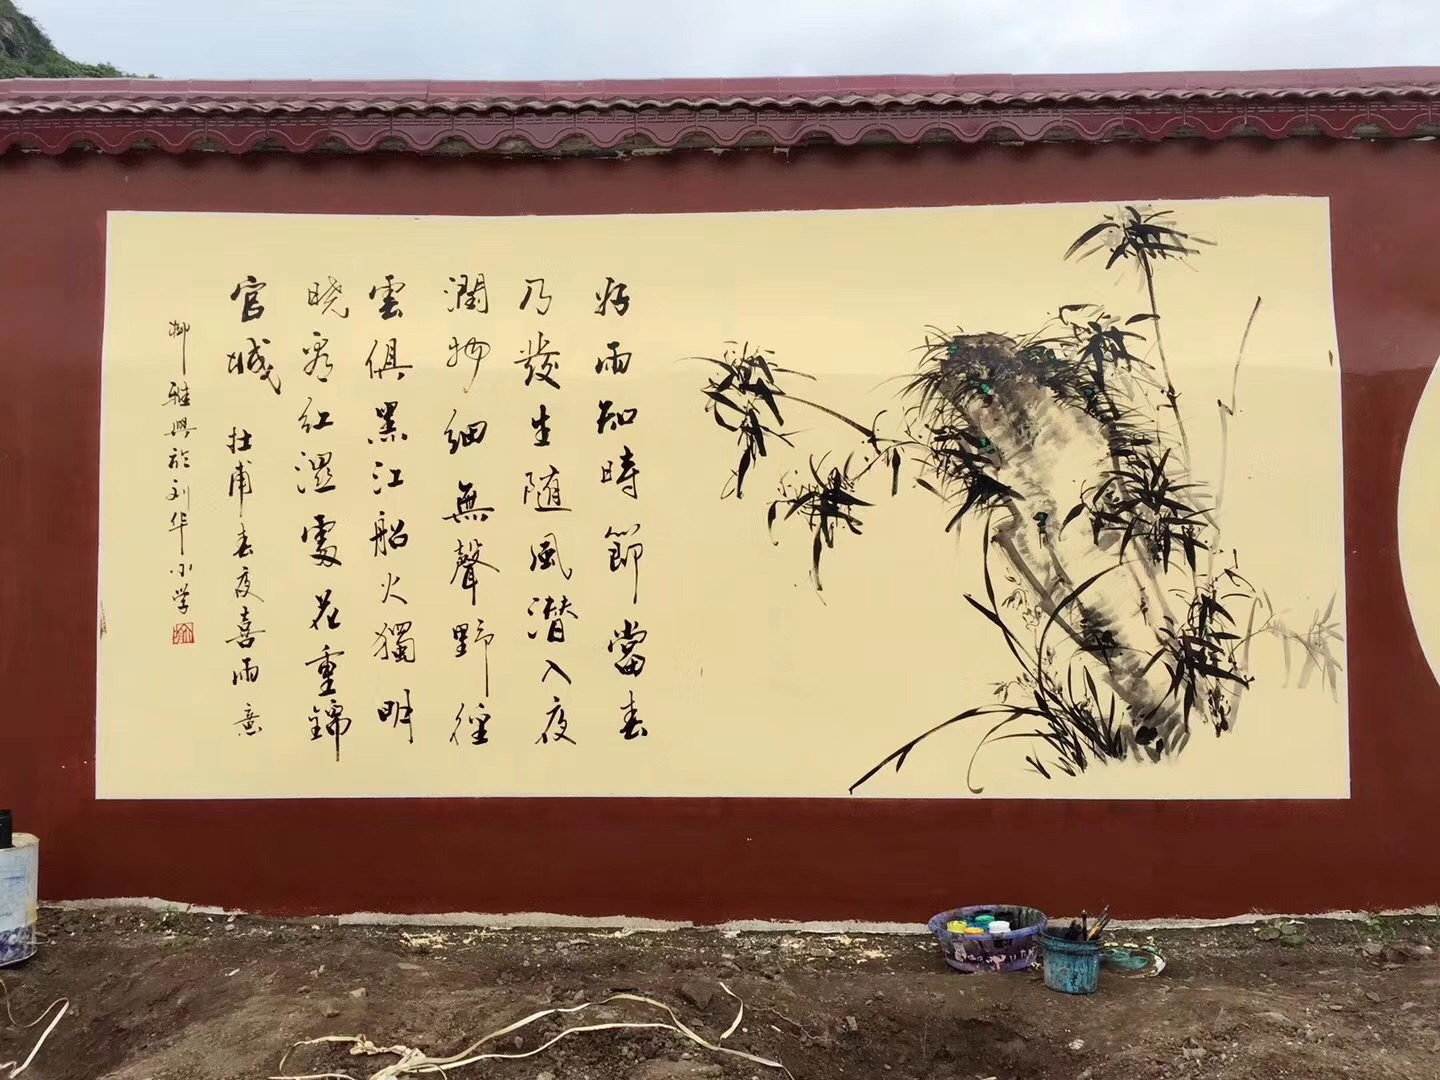 好雨知時節當春
乃發生随風潜入夜
潤物細無聲野徑
雲俱黑江船火獨明
晓看紅濕處花重錦
官城 杜甫春夜喜雨意
雅興於刘华小学